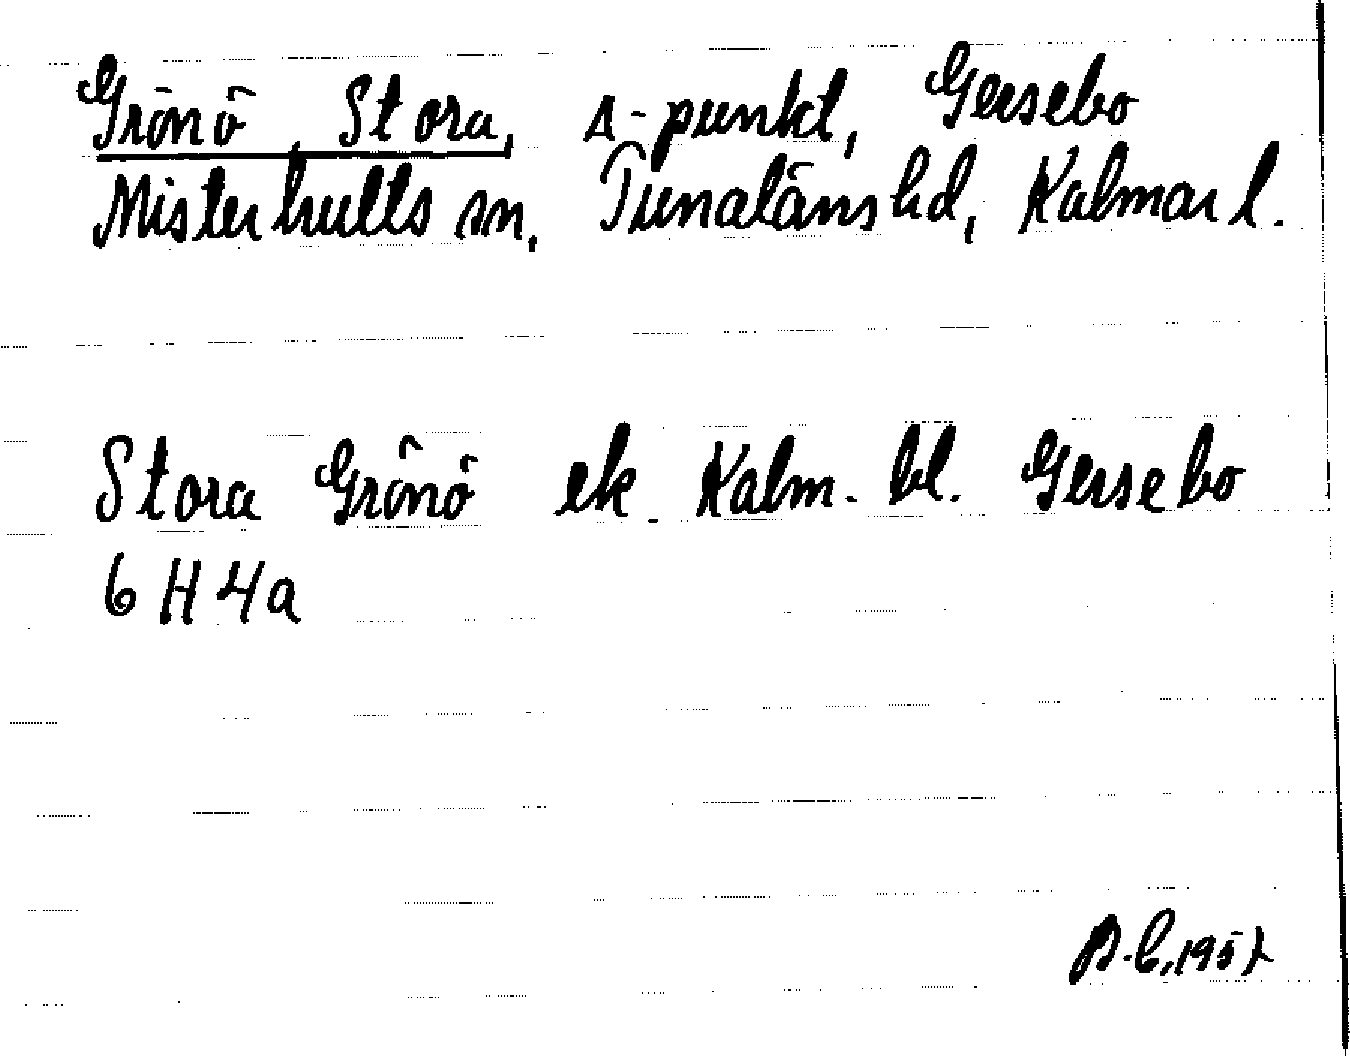 Grönö, Stora, s-punkt, Gersebo
Misterhults sn, Tunaläns hd, Kalmar l.
Stora Grönö ek. Kalm. bl. Gersebo
6 H 4a